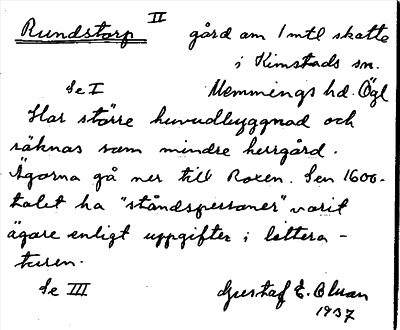 Rundstorp II gård om 1 mtl skatte
i Kimstads sn.
Se I Memmings hd. Ögl
Har större huvudbyggnad och
räknas som mindre herrgård.
Ägorna gå ner till Roxen. Sen 1600-
talet ha "ståndspersoner" varit
ägare enligt uppgifter i littera-
turen.
Se III Gustaf E. Olson
1937